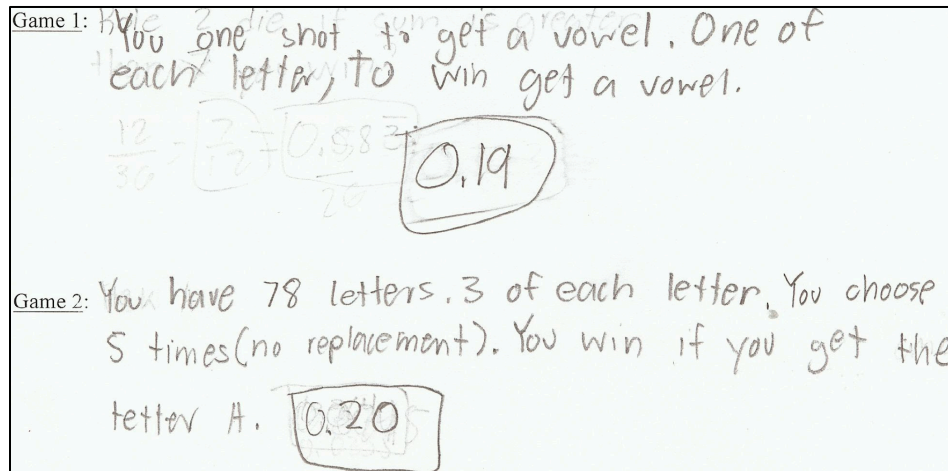 Game 1: You one shot to get a vowel. One of
each letter, to win get a vowel.
0.19
Game 2: You have 78 letters. 3 of each letter. You choose
5 times (no replacement). You win if you get the
letter A. 0.20